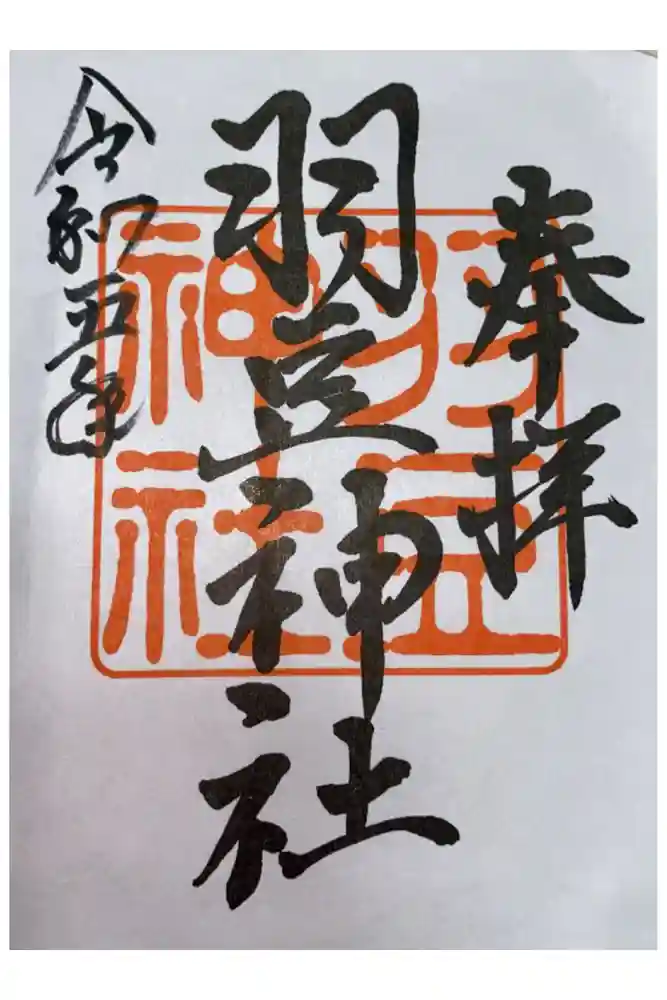 奉拝
羽豆神社
令和五年
羽豆
神社